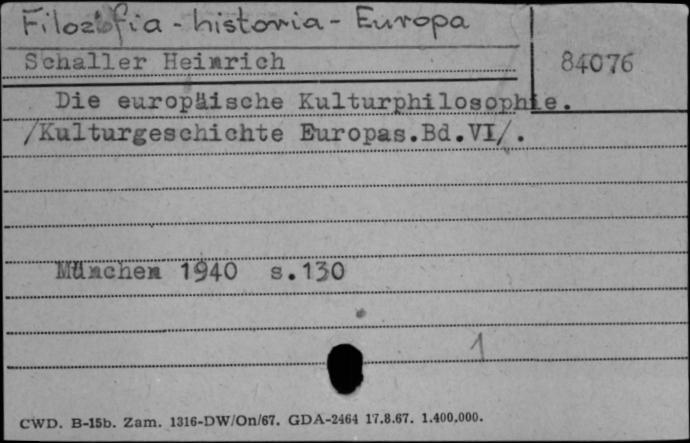 Filozofia - historia - Europa
Schaller Heinrich
84076
Die europäische Kulturphilosophie.
/Kulturgeschichte Europas.Bd.VI/.
München 1940 s.130
1
CWD. B-15b. Zam. 1316-DW/On/67. GDA-2464 17.8.67. 1.400.000.